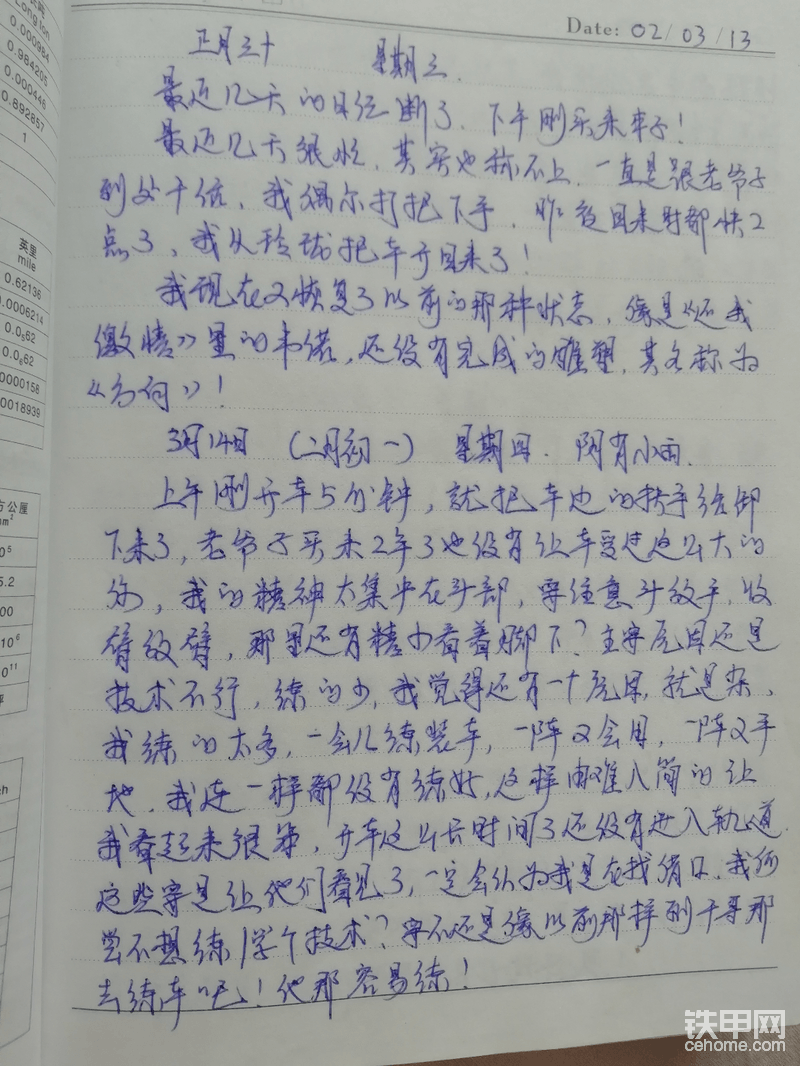 Long ton
0.000984
0.984205
0.000446
0.892857
1
英里
mile
0.62136
0.0006214
0.0₅62
0.0₆62
0000158
0018939
方公厘
mm²
10⁵
5.2
00
10⁶
10¹¹
Date: 02/03/13
正月三十 星期三.
最近几天的日径断了.下午刚买来本子!
最近几天很忙.其实也称不上.一直是跟老爷子
到处干活.我偶尔打把下手.昨夜回来时都快2
点了,我从玲珑把车开回来了!
我现在又恢复了以前的那种状态.像是《还我
激情》里的韦偌,还没有完成的雕塑.其名称为
《方向》!
3月14日 (二月初一) 星期四. 阴有小雨.
上午刚开车5分钟,就把车边的扶手给卸
下来了,老爷子买来2年了也没有让车受过这么大的
伤,我的精神太集中在斗部,要注意斗放平,收
臂放臂,那里还有精力看着脚下?主要原因还是
技术不行,练的少,我觉得还有一个原因,就是杂,
我练的太多,一会儿练装车,一阵又会甩,一阵又平
地.我连一样都没有练好,这样由难入简的让
我看起来很笨,开车这么长时间了还没有进入轨道.
这些要是让他们看见了,一定会认为我是在找借口.我何
尝不想练1学个技术?要不还是像以前那样到干哥那
去练车吧!他那容易练!
铁甲网
cehome.com